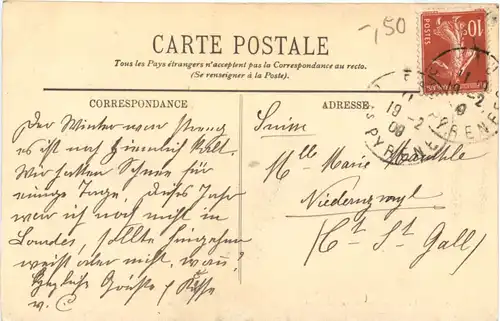 -,50
10c
CARTE POSTALE
Tous les Pays étrangers n'acceptent pas la Correspondance au recto.
(Se renseigner à la Poste).
CORRESPONDANCE
ADRESSE
19-2
09
PYRENEES
Der Winter war streng
es ist noch ziemlich kalt.
Wir hatten Schnee für
einige Tage. Dieses Jahr
war ich noch nicht in
Lourdes, sollte hingehen
weiß aber nicht, wann?
Herzliche Grüsse & Küsse
v. C
Suisse
Mlle Marie
Niederuzwyl
Ct St Gall